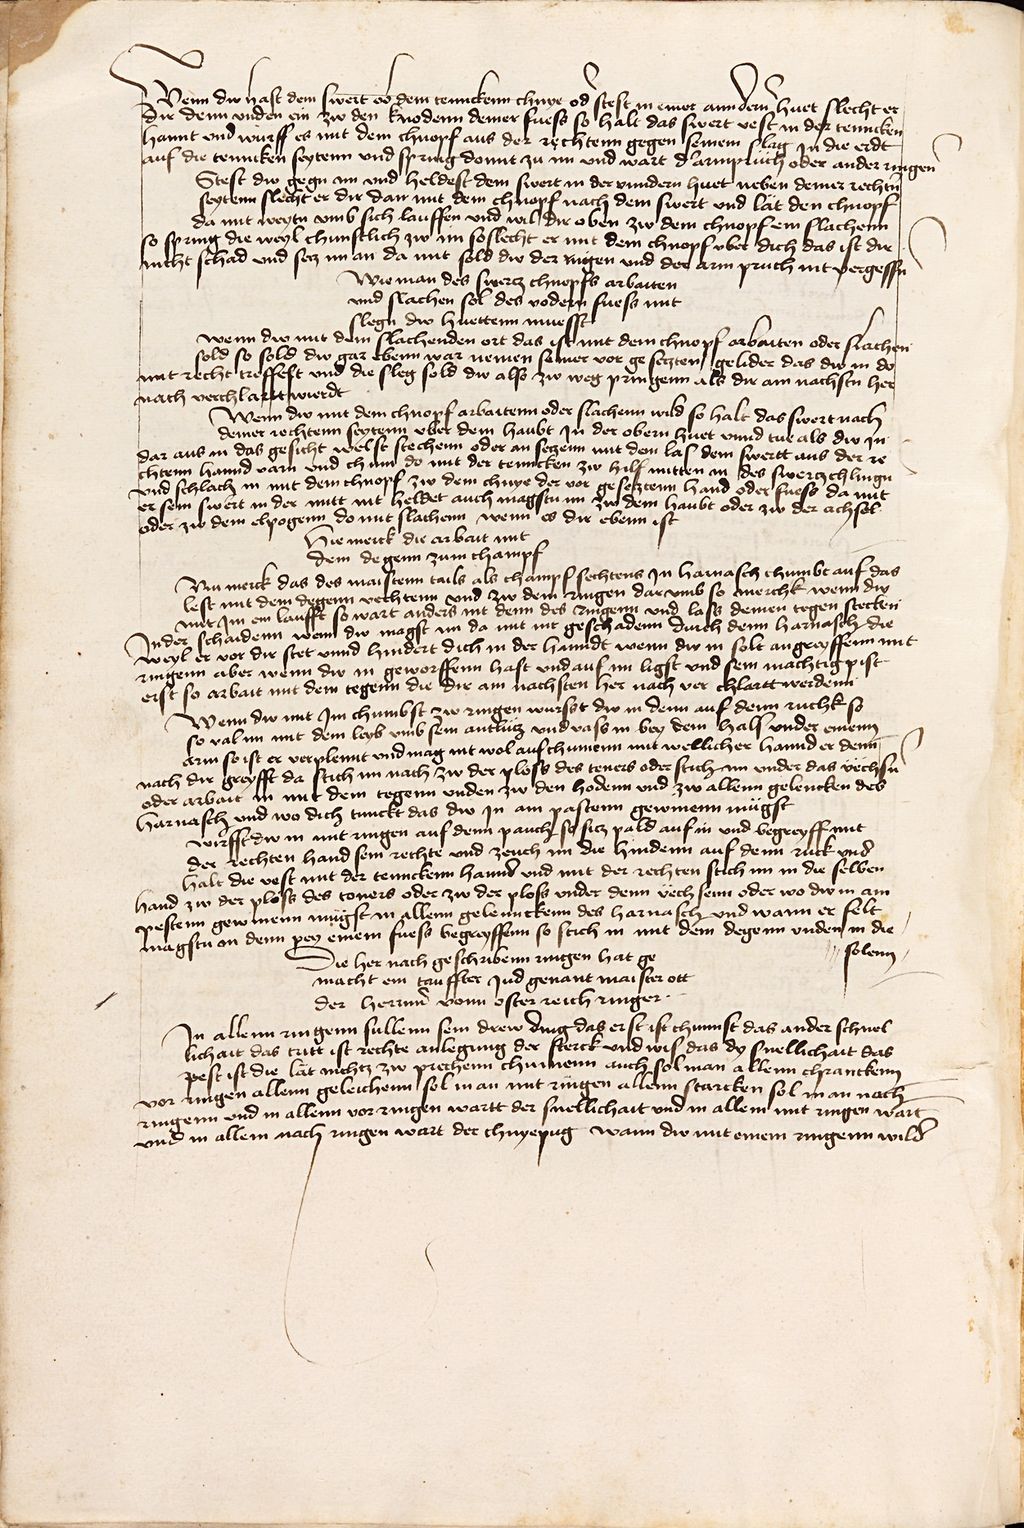 Wenn dw hast dein swert ob dem tennckenn chnye od stest in einer anndern huet slecht er
dir denn unden ein zw den knodenn deiner fuess so halt das swert vest in der tenncken
hannt und wurff es mit dem chnopf aus der rechtenn gegen seinem slag in die erdt
auf die tenncken seytenn und spring domit zu im und wart d armprüch oder ander ringen
Stest dw gegn im und heldest dein swert in der unndern huet neben deiner rechtn
seytenn slecht er dir dan mit dem chnopf nach dem swert und lät den chnopf
da mit weytn umb sich lauffen und wil dir oben zw dem chnopf ein slachenn
so spring die weyl chunstlich zw im so slecht er mit dem chnopf uber dich das ist dir
nicht schad und secz im an da mit sold dw der ringen und der arm pruch nit vergessn
Wie man des swertz chnopfs arbaiten
und slachen sol des vodern fuess mit
slegn dw huettenn muesst
Wenn dw mit dem slachenden ort das ist mit dem chnopf arbaiten oder slachen
sold so sold dw gar ebenn war nemen seiner vor gesetzten gelider das dw in do
mit recht treffest und die sleg sold dw also zw weg pringenn als dir am nachstn her
nach verchlartt wierdt
Wenn dw mit dem chnopf arbaitenn oder slachenn wild so halt das swert nach
deiner rechtenn seytenn uber dem haubt In der obern huet unnd tue als dw in
dar aus in das gesicht welst stechenn oder an seczenn mit den las dein swertt aus der re
chtenn hannd varn und chum do mit der tenncken zw hilf mitten in des swertz chlingn
und schlach in mit dem chnopf zw dem chnye der vor gesetztenn hand oder fuess da mit
er sein swert in der mitt nit heldet auch magstu im zw dem haubt oder zw der achsel
oder zw dem elpogenn do mit slachenn wenn es dir ebenn ist
Hie merck die arbait mit
dem degenn zum champf
Nu merck das des maistenn tails als champf fechtens In harnasch chumbt auf das
lest mit dem degenn vechtenn und zw dem ringen dar umb so merchk wenn dw
mit Im ein laufft so wart anders nit denn des ringenn und lass deinen tegen stecken
In der schaidenn wenn dw magst im da mit nit geschadenn durch denn harnasch die
weyl er vor dir stet unnd hindert dich in der hanndt wenn dw in solt angreyffenn mit
ringenn aber wenn dw in geworffenn hast und auf im ligst und sein machtig pist
erst so arbait mit dem tegenn die dir am nachsten her nach ver chlartt werdenn
Wenn dw mit Im chumbst zw ringen wurfst dw in denn auf denn ruchk so
so val im mit dem leyb umb sein antlütz und vass in bey dem hals under einenn
arm so ist er verplennt und mag nit wol auf chumenn mit wellicher hannd er denn
nach dir greyfft da stich im nach zw der ploss des teners oder stich im under das üechsn
oder arbait in mit dem tegenn unden zw den hodenn und zw allenn gelencken des
harnasch und wo dich tunckt das dw in am pastenn gewinenn mügst
Wirfst dw in mit ringen auf denn pauch so sicz pald auf in und begreyff mit
der rechten hand sein rechte und zeuch im die hindenn auf denn ruck und
halt die vest mit der tennckenn hannd und mit der rechten stich im in die selben
hand zw der ploss des toners oder zw der ploss under denn üechsenn oder wo dw in am
pestenn gewinenn mügst in allenn gelennckenn des harnasch und wann er felt
magstu in denn pey einem fuess begreyffenn so stich in mit dem degenn unden in die
solenn
Die her nach geschribenn ringen hat ge
macht ein tauffter Jud genant maister ott
der herrnn vonn osterreich ringer
In allenn ringenn sullenn sein drew ding das erst ist chunst das ander schnel
lichait das tritt ist rechte anlegung der sterck und wis das dy snellichait das
pest ist die lät nichtz zw prechenn chumenn auch sol man allenn chranckenn
vor ringen allenn geleichenn sol man mit ringen allenn starcken sol man nach
ringenn und in allenn vor ringen wartt der snellichait und in allem mit ringen wart
und in allem nach ringen wart der chnyepug wann dw mit einem ringenn wild